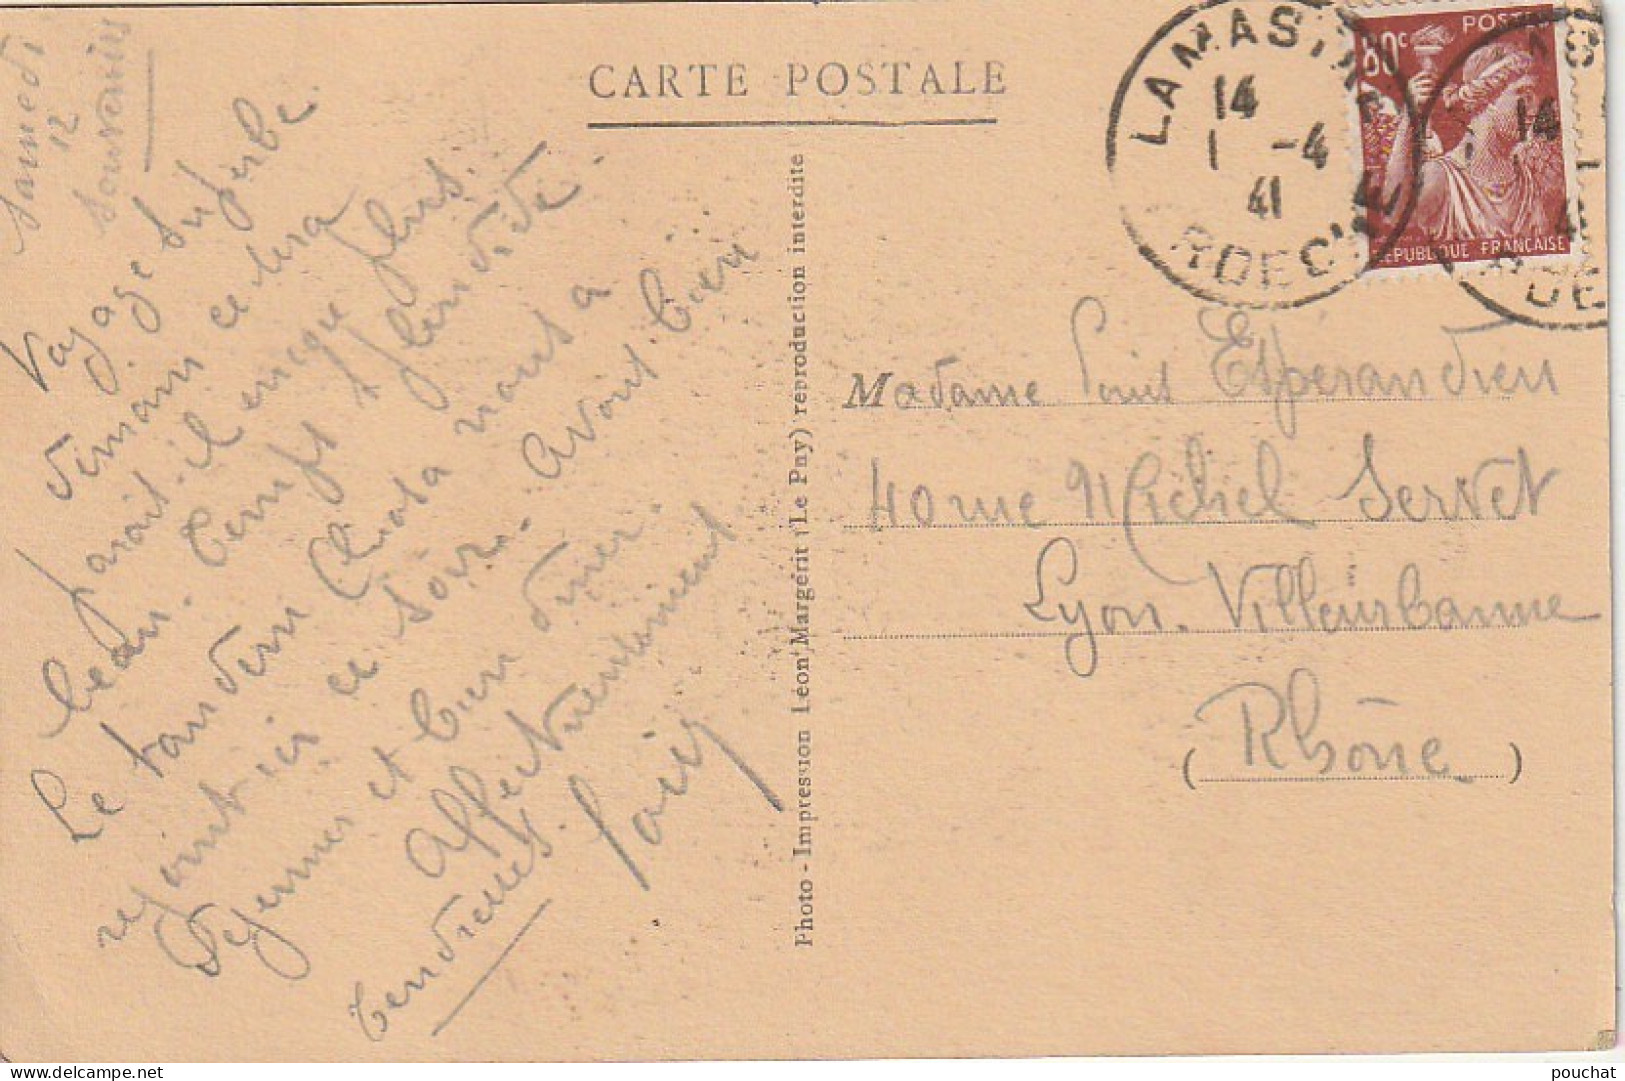 CARTE POSTALE
Samedi
12
Souvenirs
Voyage superbe.
demain ce sera
parait-il encore plus
beau. Temps splendide.
Le tandem nous a
rejoint ici ce soir. Avons bien
déjeuner et bien diner.
Affectueusement
Tendresses.
Photo - Impression Léon Margérit (Le Puy) reproduction interdite
LAMASTRE
14
1 -4
41
ARDECHE
80c
POSTES
REPUBLIQUE FRANÇAISE
14
Madame Louis Esperandieu
40 rue Michel Servet
Lyon. Villeurbanne
(Rhône)
delcampe.net
pouchat